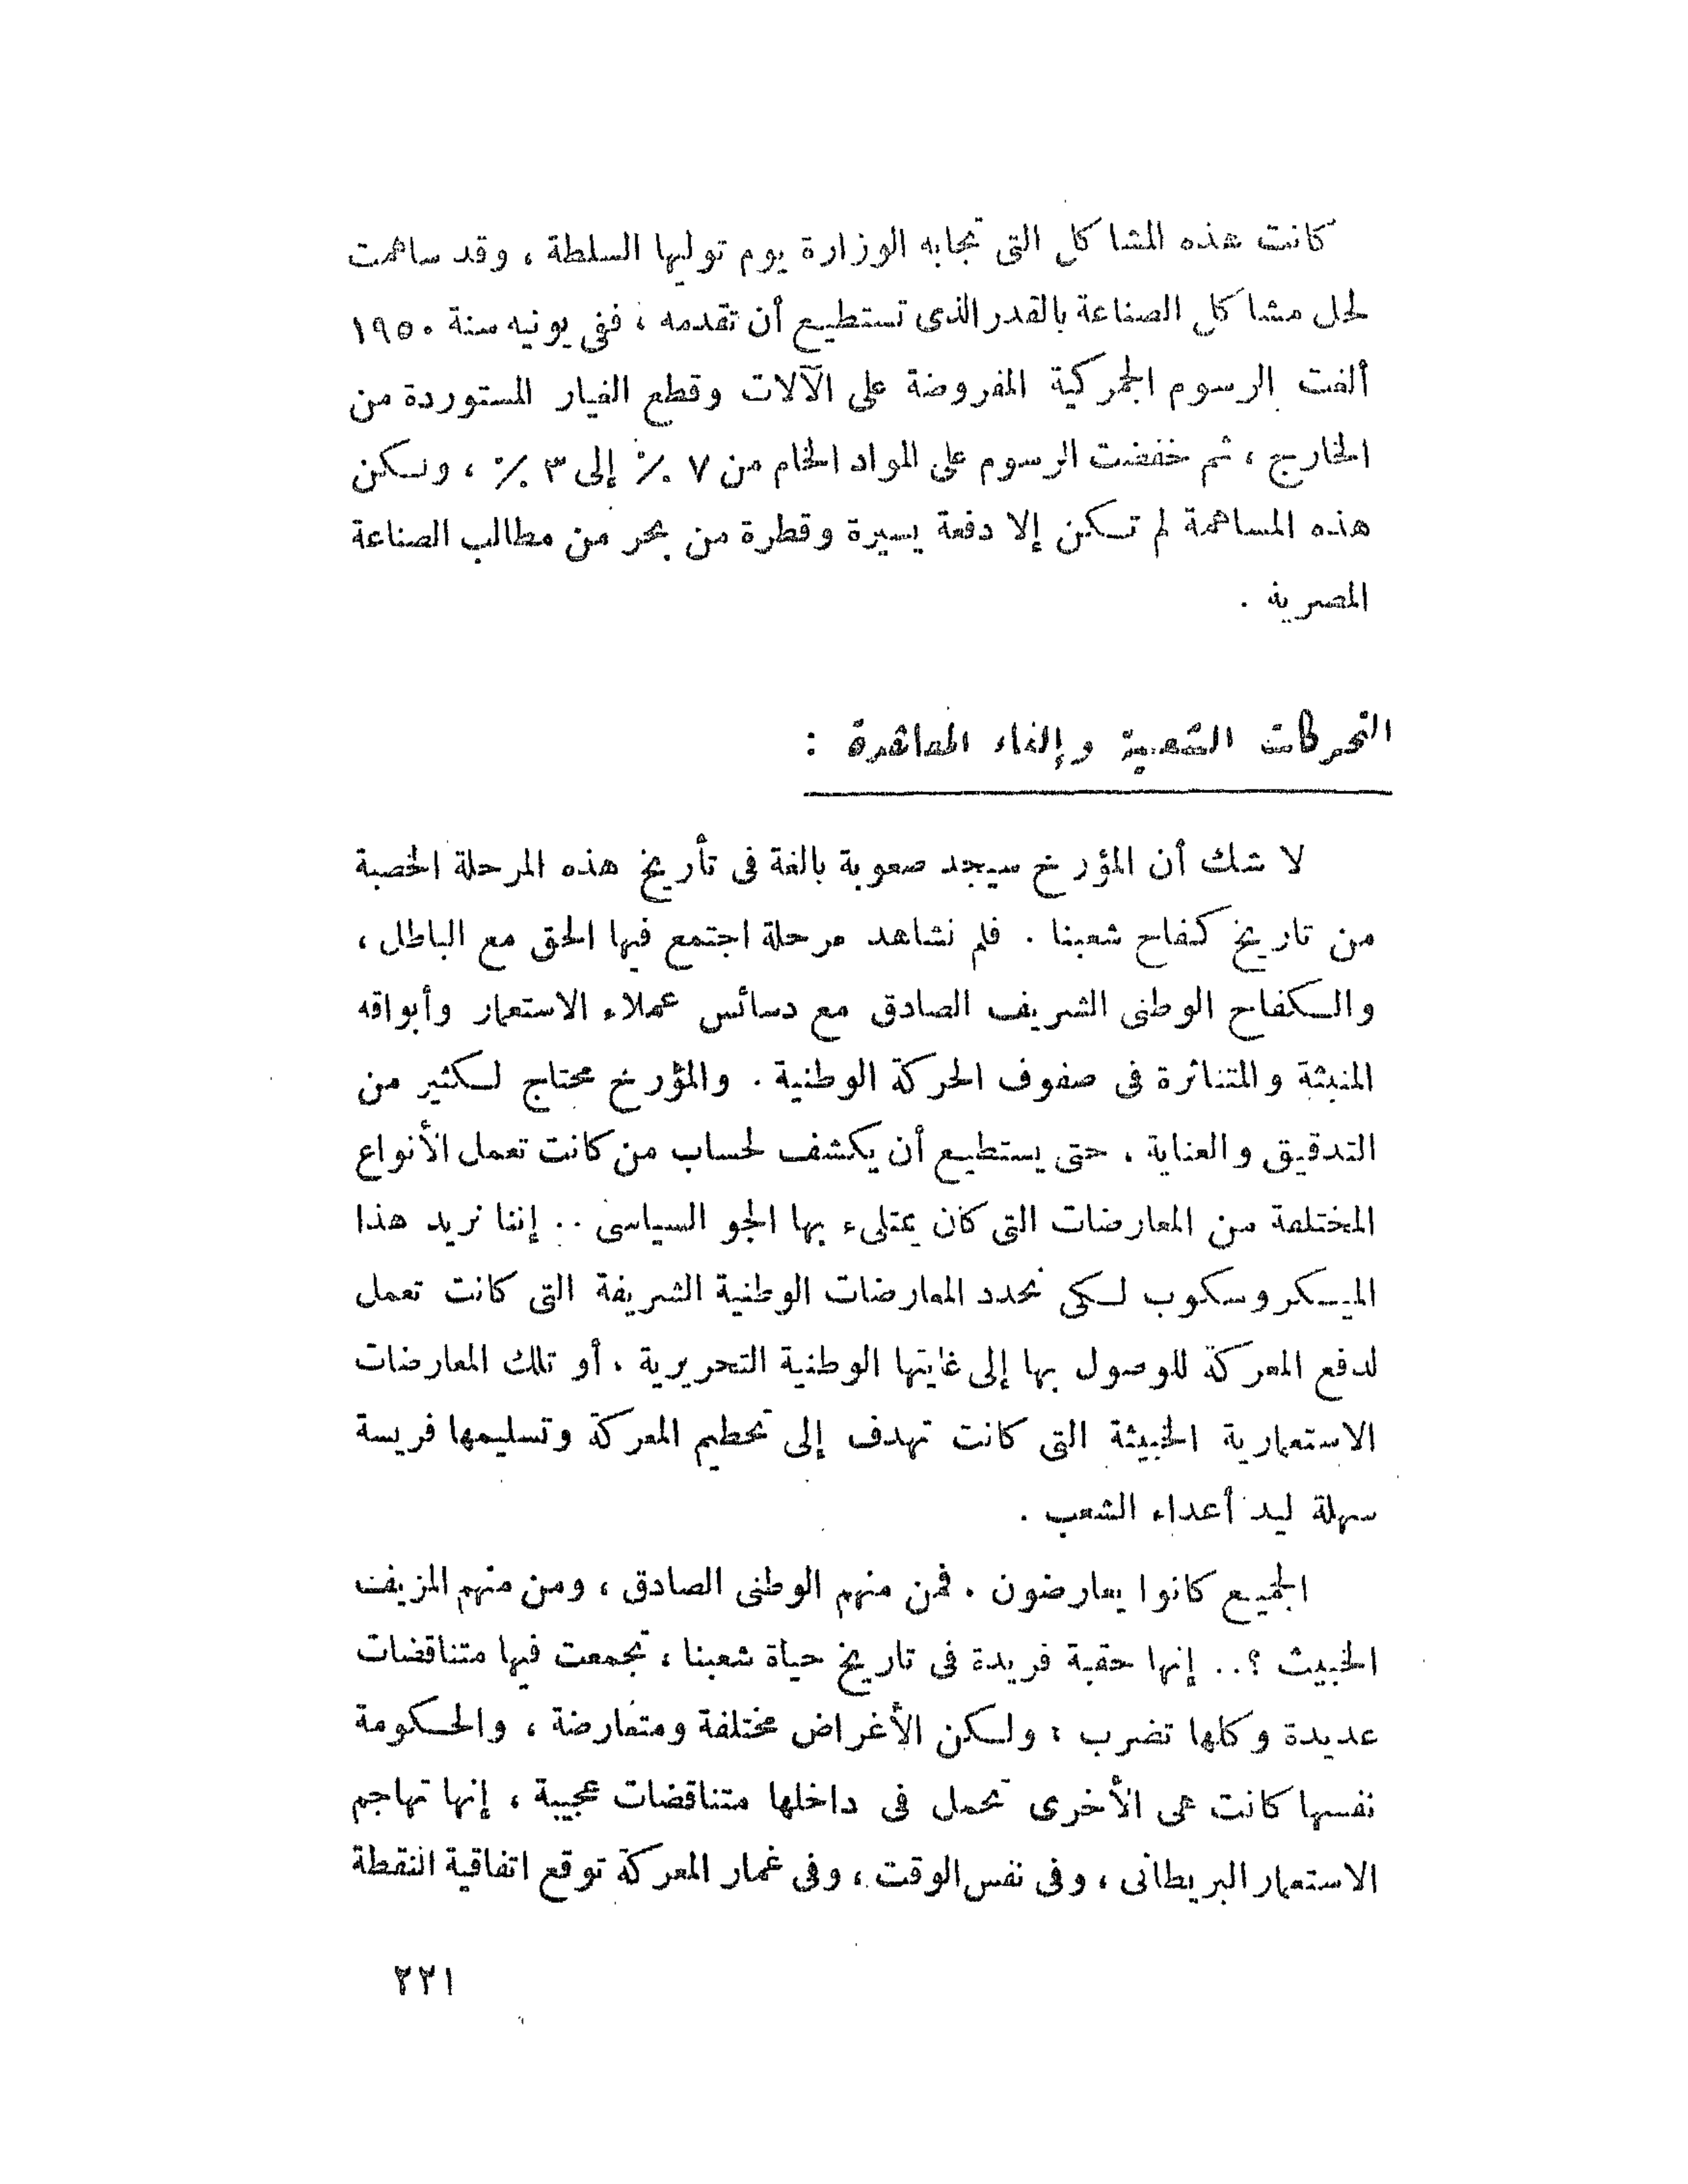 كانت هذه المشاكل التى تجابه الوزارة يوم توليها السلطة ، وقد ساهمت
لحل مشاكل الصناعة بالقدر الذى تستطيع أن تقدمه ، ففى يونيه سنة ١٩٥٠
ألغت الرسوم الجمركية المفروضة على الآلات وقطع الغيار المستوردة من
الخارج ، ثم خفضت الرسوم على المواد الخام من ٧ ٪ إلى ٣ ٪ ، ولكن
هذه المساهمة لم تكن إلا دفعة يسيرة وقطرة من بحر من مطالب الصناعة
المصرية .
التحركات الشعبية وإلغاء المعاهدة :
لا شك أن المؤرخ سيجد صعوبة بالغة فى تأريخ هذه المرحلة الخصبة
من تاريخ كفاح شعبنا . فلم نشاهد مرحلة اجتمع فيها الحق مع الباطل ،
والكفاح الوطنى الشريف الصادق مع دسائس عملاء الاستعمار وأبواقه
المنبثة والمتناثرة فى صفوف الحركة الوطنية . والمؤرخ محتاج لكثير من
التدقيق والعناية . حتى يستطيع أن يكشف لحساب من كانت تعمل الأنواع
المختلفة من المعارضات التى كان يمتلىء بها الجو السياسى .. إننا نريد هذا
الميكروسكوب لكى نحدد المعارضات الوطنية الشريفة التى كانت تعمل
لدفع المعركة للوصول بها إلى غايتها الوطنية التحريرية . أو تلك المعارضات
الاستعمارية الخبيثة التى كانت تهدف إلى تحطيم المعركة وتسليمها فريسة
سهلة ليد أعداء الشعب .
الجميع كانوا يعارضون . فمن منهم الوطنى الصادق ، ومن منهم المزيف
الخبيث ؟.. إنها حقبة فريدة فى تاريخ حياة شعبنا ، تجمعت فيها متناقضات
عديدة وكلها تضرب ؛ ولكن الأغراض مختلفة ومتعارضة ، والحكومة
نفسها كانت هى الأخرى تحمل فى داخلها متناقضات عجيبة ، إنها تهاجم
الاستعمار البريطانى ، وفى نفس الوقت ، وفى غمار المعركة توقع اتفاقية النقطة
٢٢١